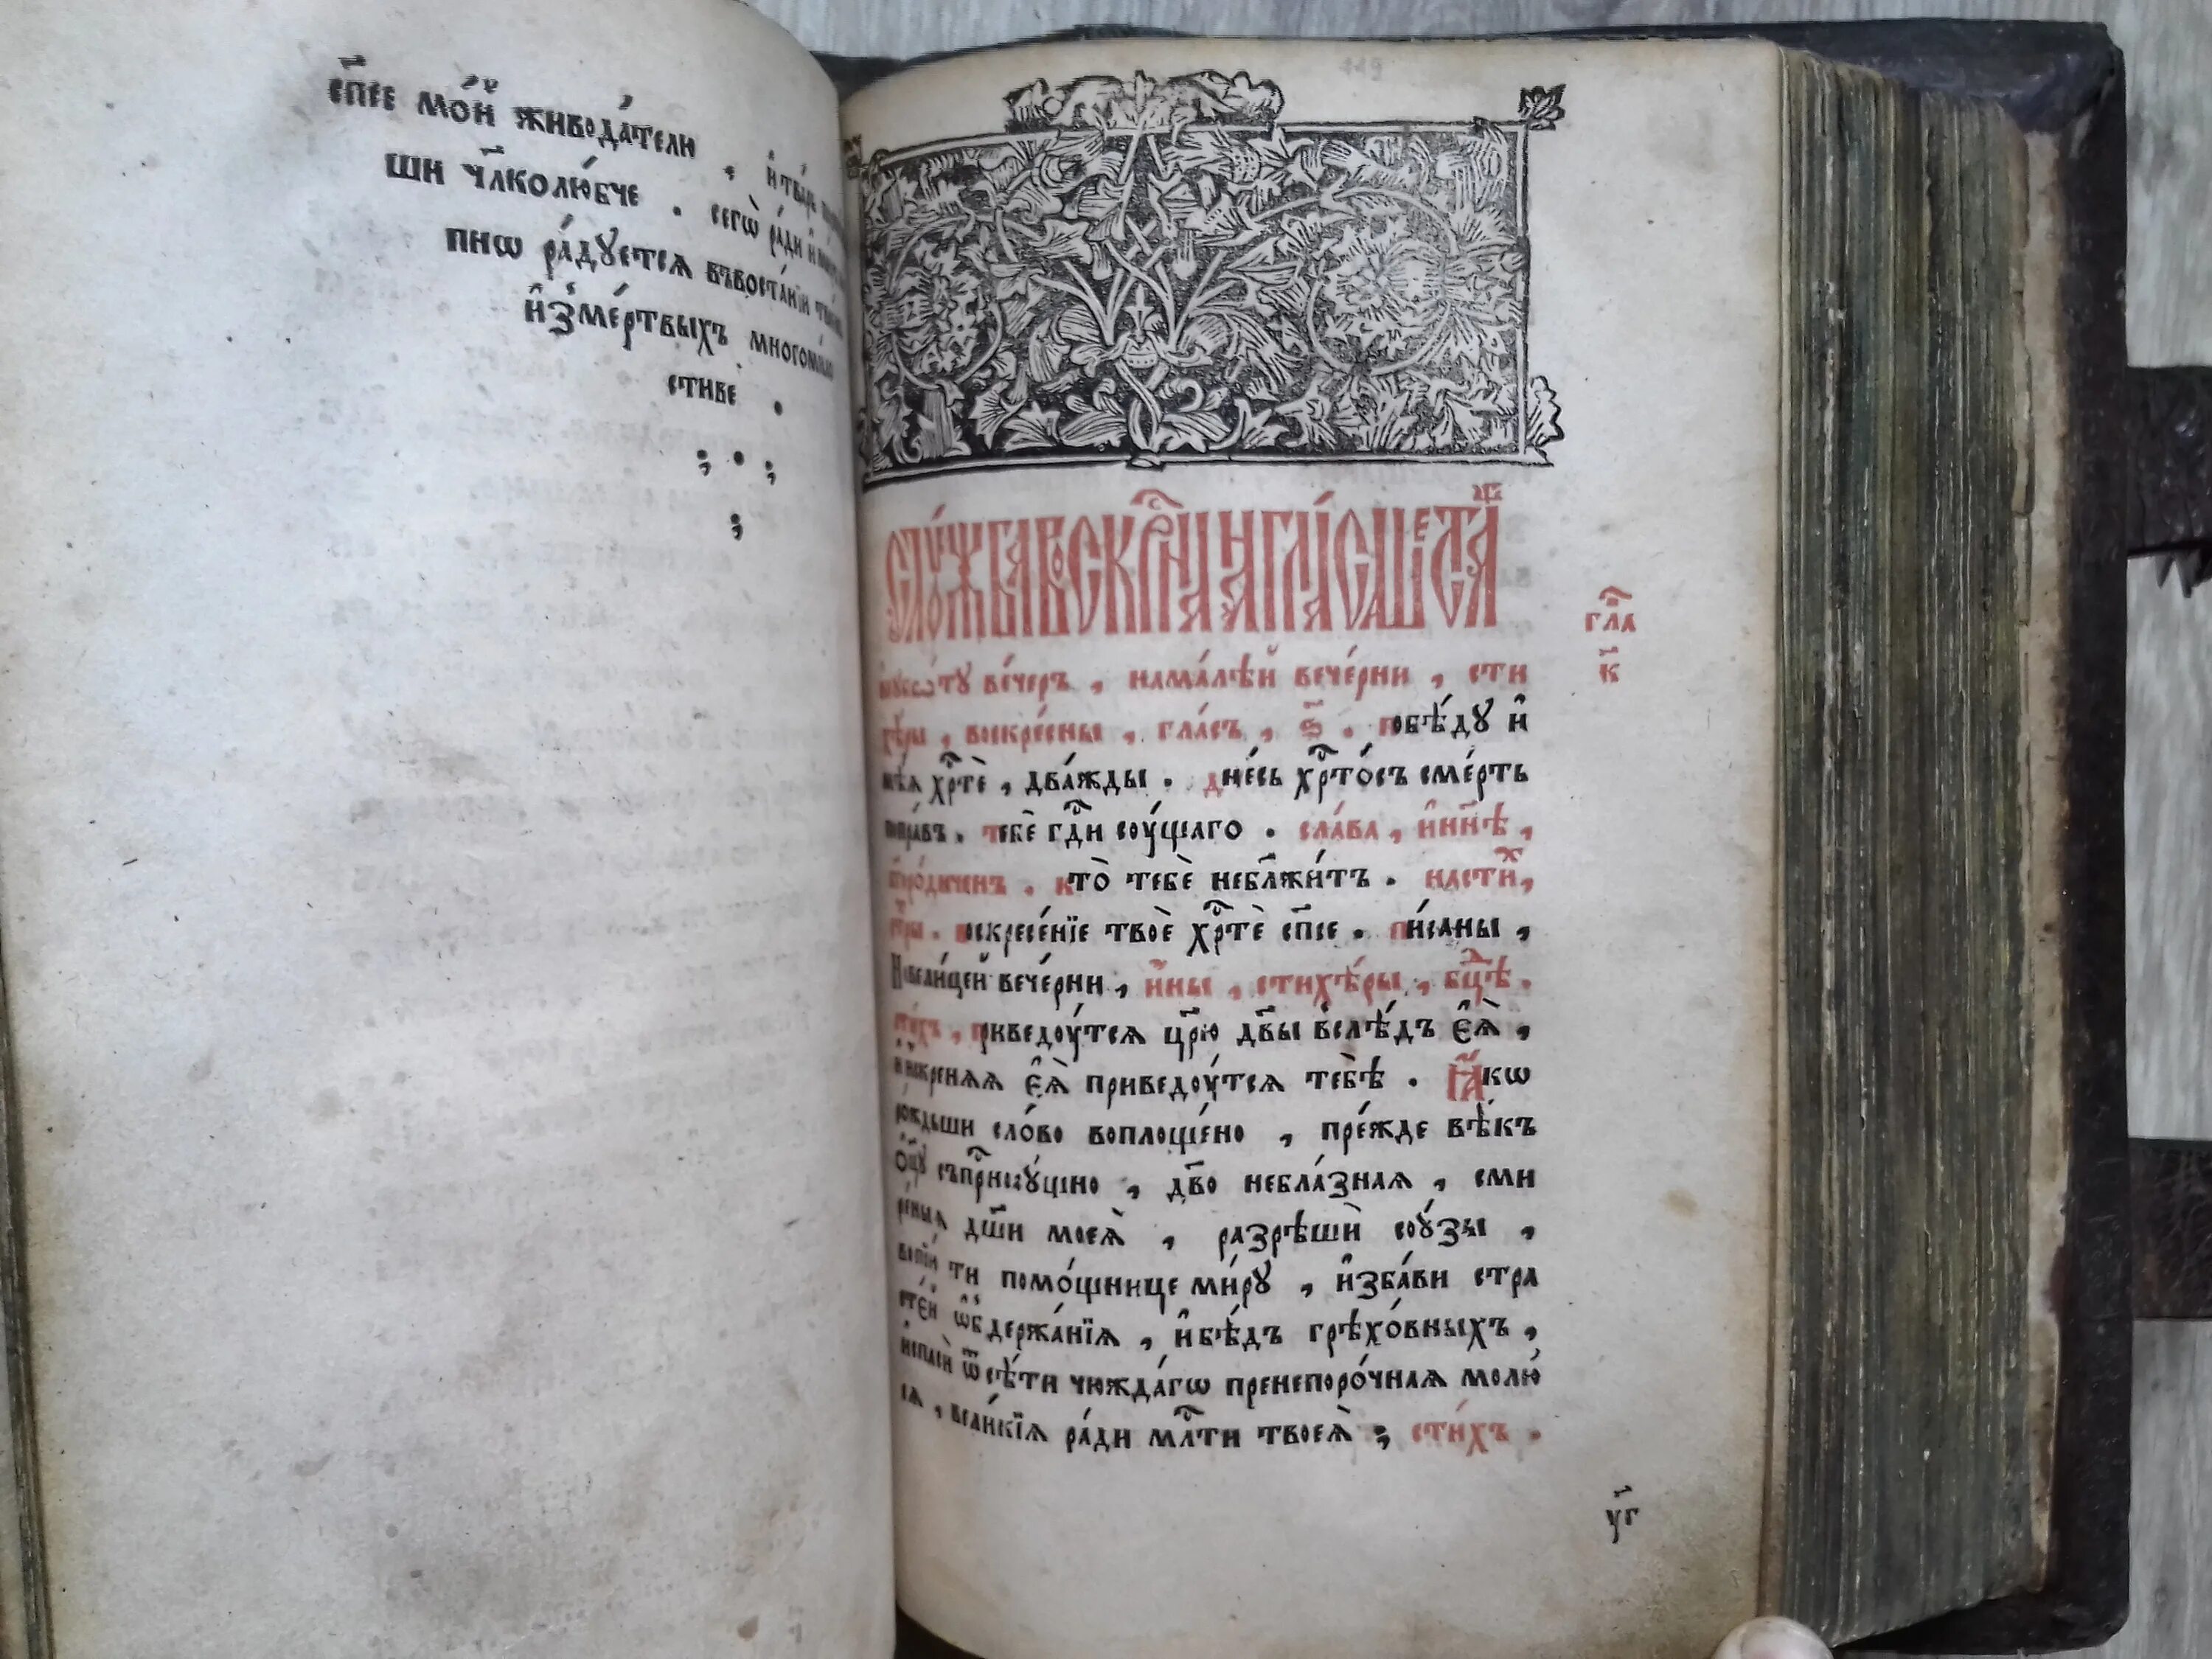 сп҃се мо́й живода́тели , и҆тва́рь
ши чл҃колю́бче . сегѡ̀ ра́ди и҆
пнѡ ра́дꙋетсѧ въвоста́нїи
и҆зме́ртвыхъ многоми́ло
стиве .
119
слꙋ́жбавоскрⷭ҇наѧ гла́сашеста́гѡ
гла
к҃
вꙋсꙋбо́тꙋ ве́черъ , нама́лѣй вече́рни , сти
хѣ́ры , воскре́сны , гла́съ , ѕ҃ . побѣ́дꙋ и҆
мѣ́ѧ хрⷭ҇тѐ , два́жды . дне́сь хрⷭ҇то́съ сме́рть
попра́въ . тебѐ гдⷭ҇и соу́щаго . сла́ва , и҆нн҃ѣ ,
бг҃оро́диченъ . кто̀ тебѐ небл҃жи́тъ . насти́хⷯ ,
стⷯры . воскресе́нїе твоѐ хрⷭ҇тѐ сп҃се . пи́саны ,
Навели́цей вече́рни , и҆́ны , стихѣ́ры , бцⷣѣ .
сти́хъ , приведоу́тсѧ цр҃ю дв҃ы вслѣ́дъ є҆ѧ̀ ,
и҆и҆́скренѧѧ є҆ѧ̀ приведоу́тсѧ тебѣ̀ . Ꙗ҆́кѡ
ро́ждьши сло́во воплоще́но , пре́жде вѣ́къ
ѻ҆ц҃ꙋ съпрⷭ҇носꙋ́щно , дв҃о небла́знаѧ , сми
ре́ныѧ дш҃и моеѧ̀ , разрѣшѝ соу́зы ,
вопїи́ ти помо́щнице ми́рꙋ , и҆зба́ви стра
сте́й ѡ҆бдержа́нїѧ , и҆бѣ́дъ грѣхо́вныхъ ,
и҆плѣ́й ѿсѣ́ти чюжда́гѡ пренепоро́чнаѧ молю́
сѧ , вели́кїѧ ра́ди млⷭ҇ти твоеѧ̀ ; сти́хъ .
уг҃